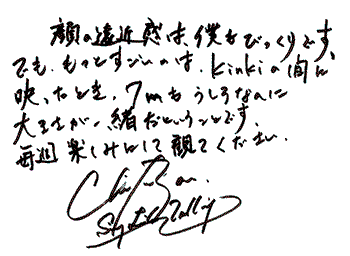 顔の遠近感は、僕もびっくりです。
でも、もっとすごいのは、Kinkiの間に
映ったとき、7mもうしろなのに
大きさが一緒だということです。
毎週楽しみにして観てください。